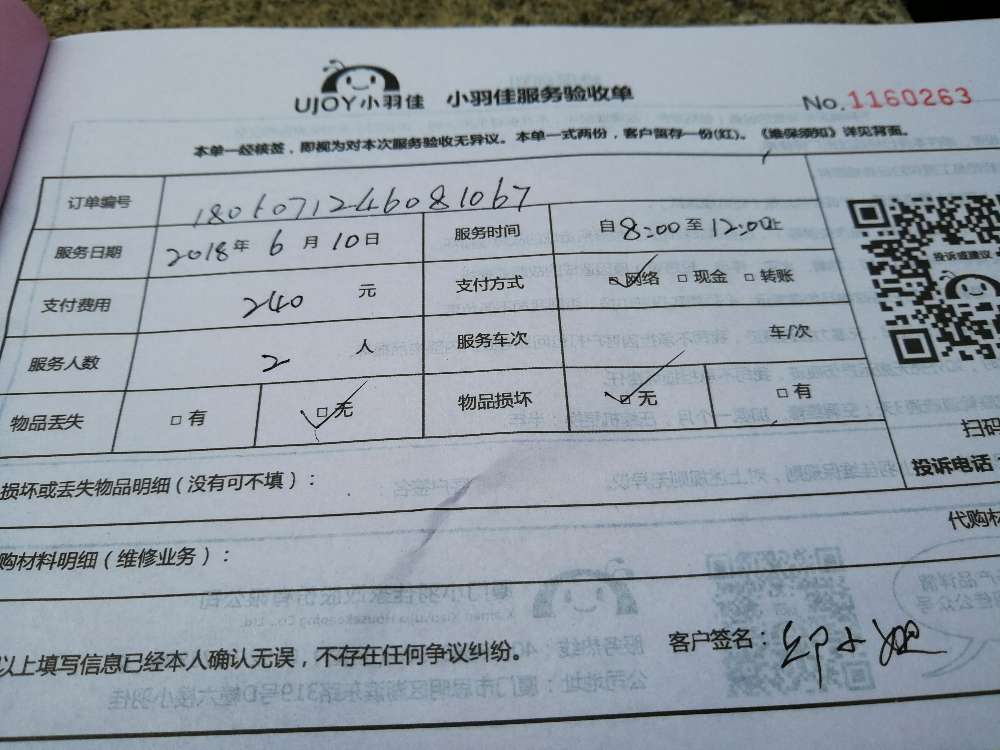 UJOY小羽佳 小羽佳服务验收单
No.1160263
本单一经核签,即视为对本次服务验收无异议。本单一式两份,客户留存一份(红)。《维保须知》详见背面。
订单编号 1806071246081067
服务日期 2018年6月10日 服务时间 自8:00至12:00止
投诉或建议
支付费用 240元 支付方式 网络 □现金 □转账
服务人数 2人 服务车次 车/次
物品丢失 □有 □无 物品损坏 □无 □有
扫码
投诉电话
损坏或丢失物品明细(没有可不填):
代购材
购材料明细(维修业务):
以上填写信息已经本人确认无误,不存在任何争议纠纷。
客户签名: